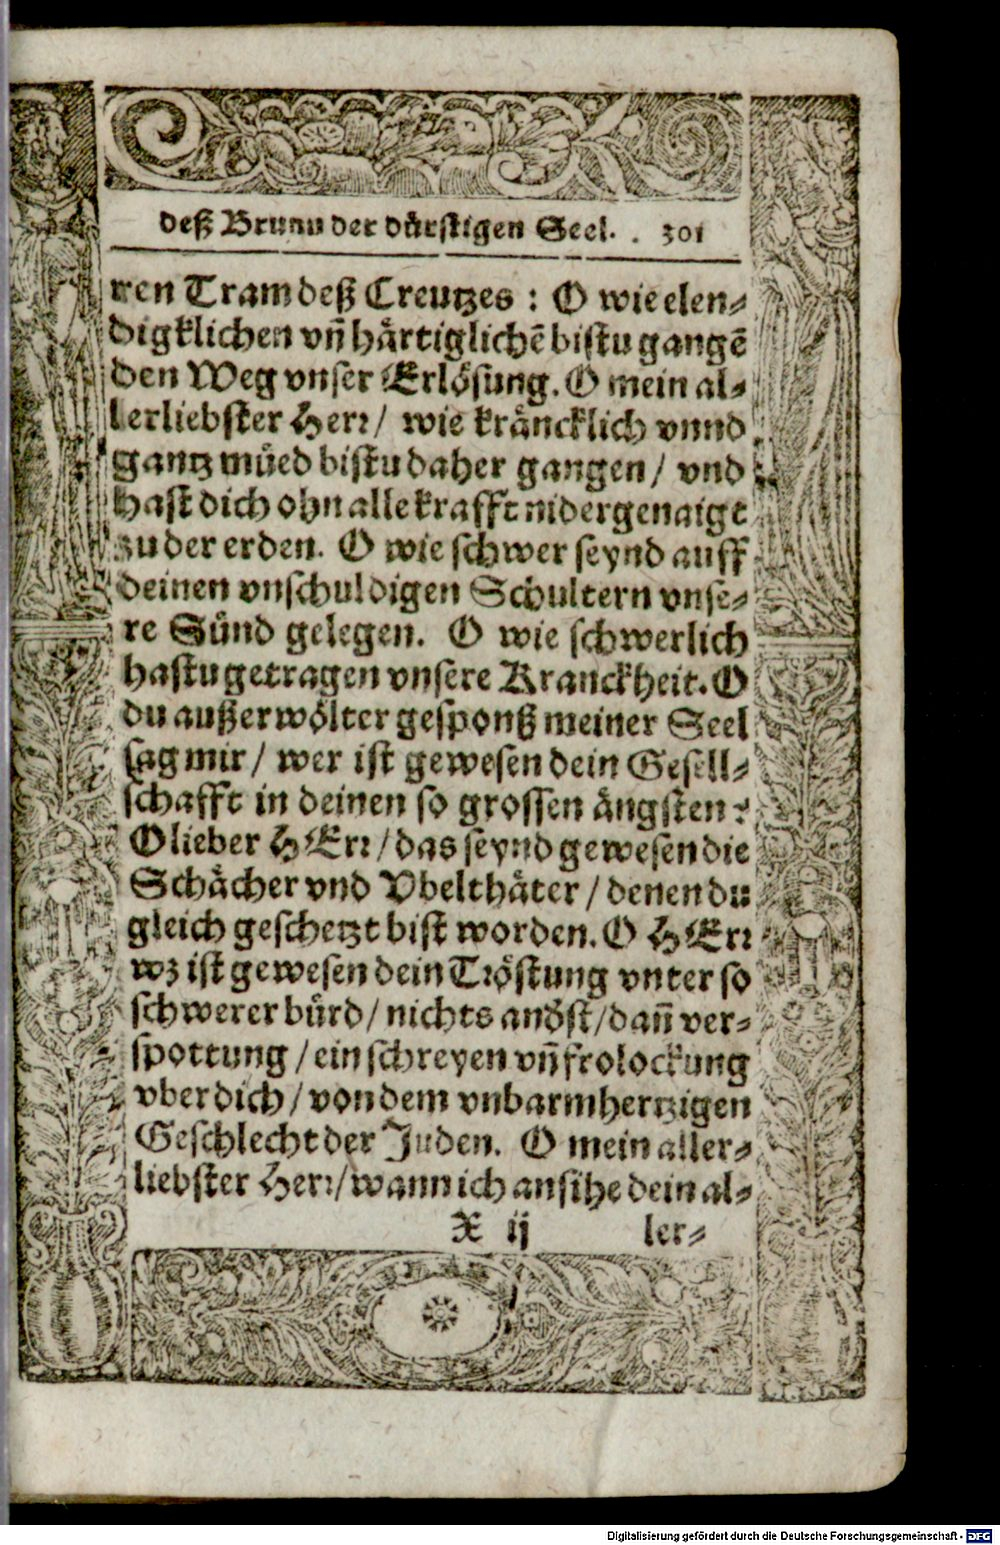 deß Brunn der dürstigen Seel. . 301
ren Tram deß Creutzes : O wie elen⸗
digklichen vñ härtiglichẽ bistu gangẽ
den Weg vnser Erlösung. O mein al⸗
lerliebster Herr / wie kräncklich vnnd
gantz müed bistu daher gangen / vnd
hast dich ohn alle krafft nidergenaigt
zu der erden. O wie schwer seynd auff
deinen vnschuldigen Schultern vnse⸗
re Sünd gelegen. O wie schwerlich
hastu getragen vnsere Kranckheit. O
du außerwölter gesponß meiner Seel
sag mir / wer ist gewesen dein Gesell⸗
schafft in deinen so grossen ängsten ?
O lieber HErr / das seynd gewesen die
Schächer vnd Vbelthäter / denen du
gleich geschetzt bist worden. O HErr
wz ist gewesen dein Tröstung vnter so
schwerer bürd / nichts anöst / dañ ver⸗
spottung / ein schreyen vñ frolockung
vber dich / von dem vnbarmhertzigen
Geschlecht der Juden. O mein aller⸗
liebster Herr / wann ich ansihe dein al⸗
X ij ler⸗
Digitalisierung gefördert durch die Deutsche Forschungsgemeinschaft - DFG